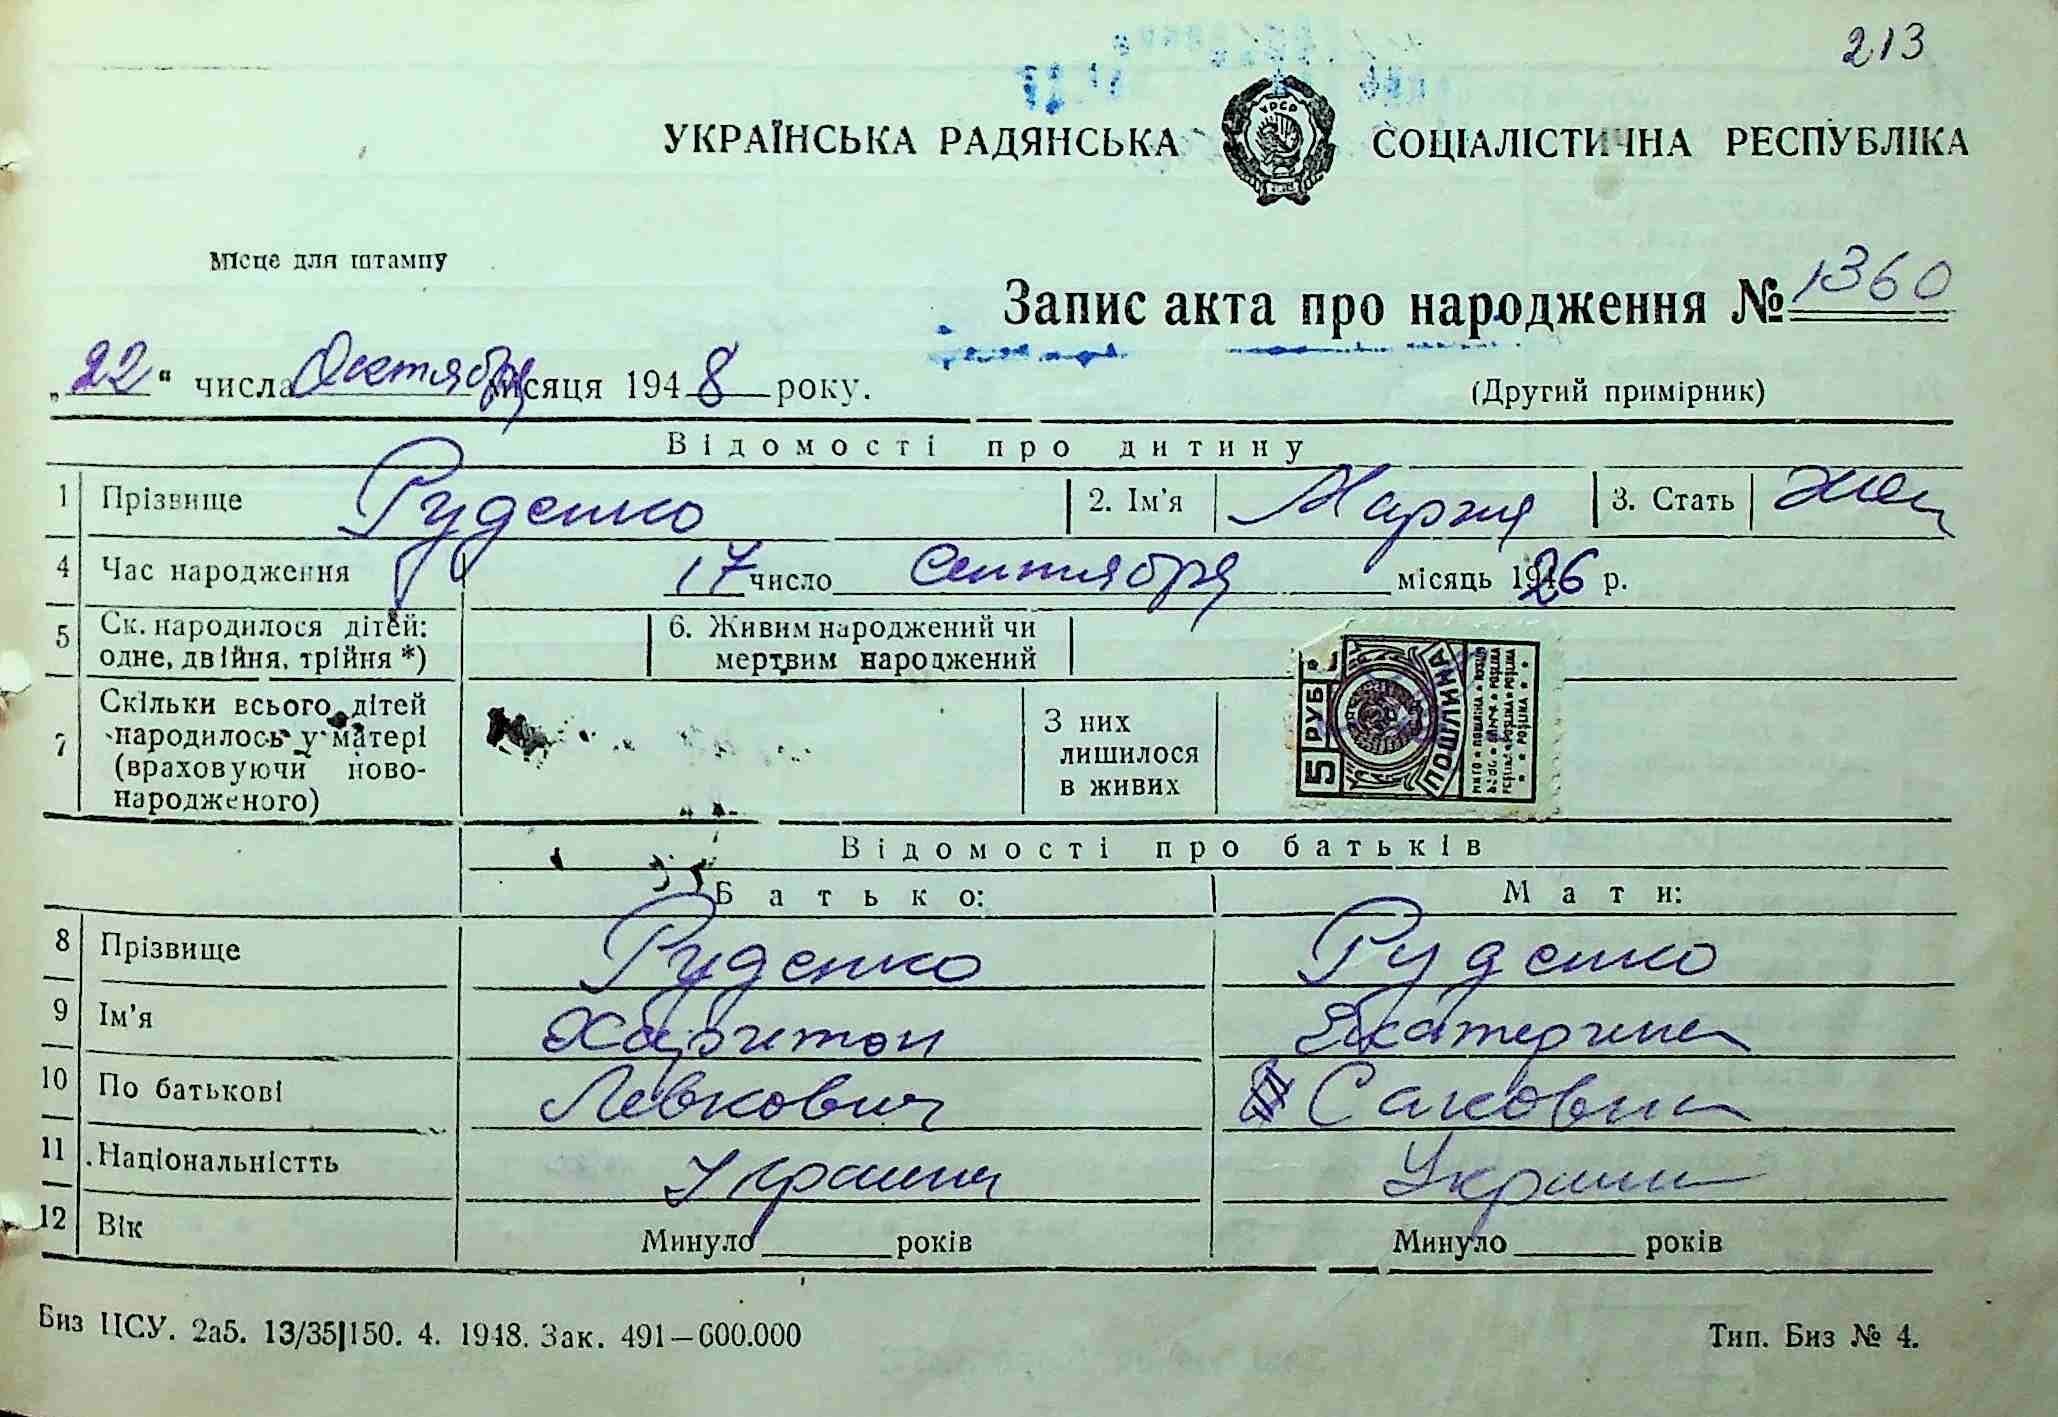 213
УКРАЇНСЬКА РАДЯНСЬКА СОЦІАЛІСТИЧНА РЕСПУБЛІКА
УРСР
Місце для штампу
Запис акта про народження № 1360
„22“ числа Октября місяця 1948 року.
(Другий примірник)
Відомості про дитину
1 Прізвище Руденко 2. Ім'я Мария 3. Стать жен
4 Час народження 17 число Сентября місяць 1926 р.
5 Ск. народилося дітей: одне, двійня, трійня *) 6. Живим народжений чи мертвим народжений
7 Скільки всього дітей народилось у матері (враховуючи ново-народженого) З них лишилося в живих
5 РУБ ПОШЛИНА
Відомості про батьків
Батько: Мати:
8 Прізвище Руденко Руденко
9 Ім'я Харитон Екатерина
10 По батькові Левкович Саковна
11 Національністть Украин Украин
12 Вік Минуло років Минуло років
Биз ЦСУ. 2а5. 13/35|150. 4. 1948. Зак. 491—600.000 Тип. Биз № 4.